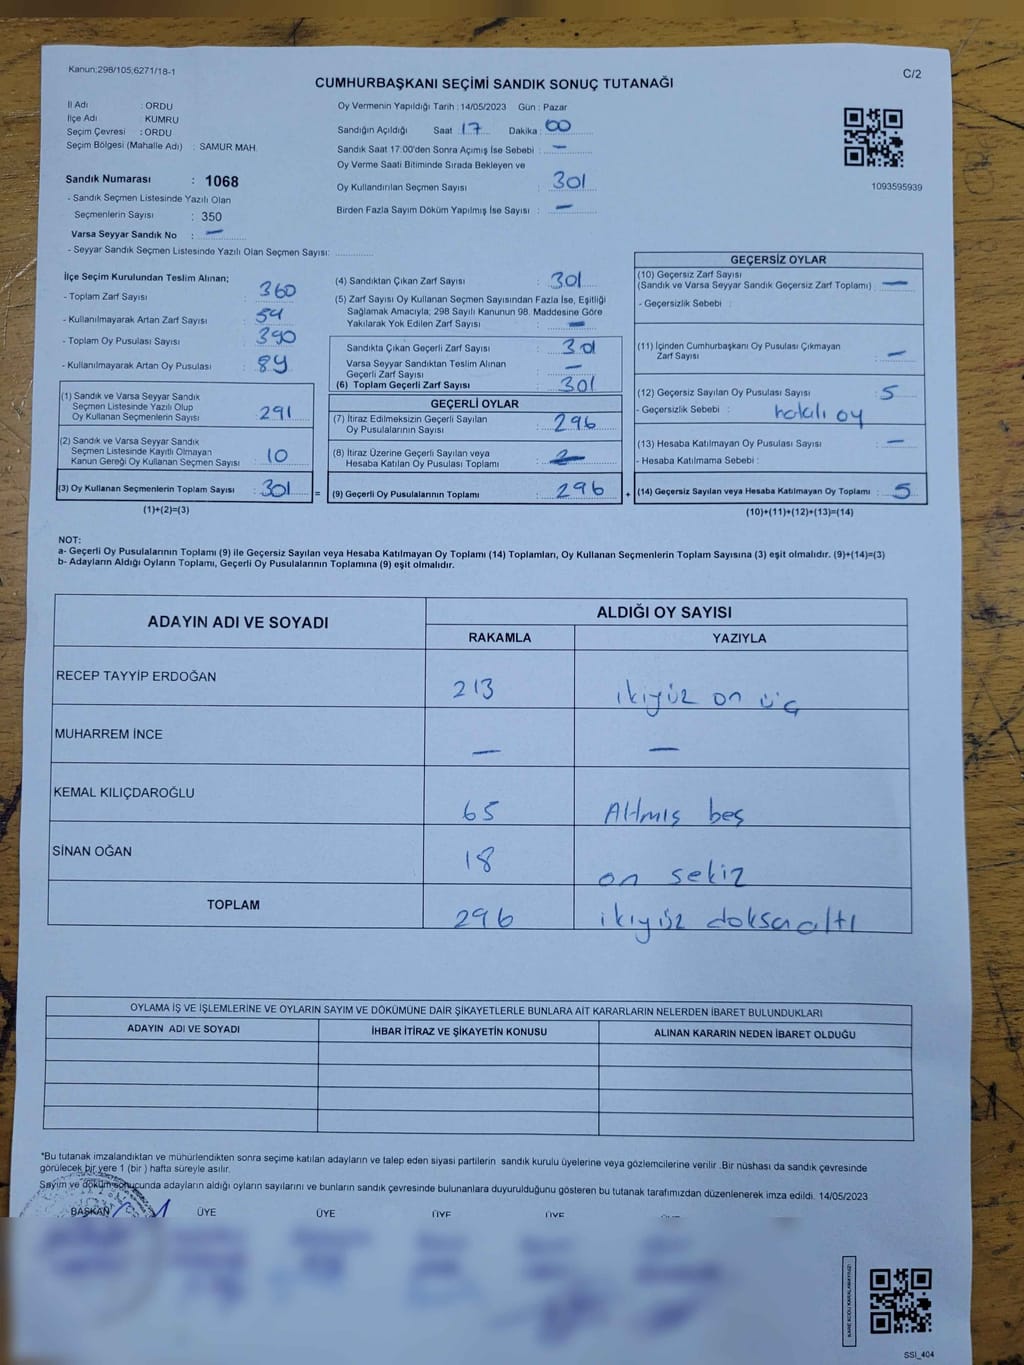 Kanun:298/105;6271/18-1
C/2
CUMHURBAŞKANI SEÇİMİ SANDIK SONUÇ TUTANAĞI
İl Adı : ORDU
İlçe Adı : KUMRU
Seçim Çevresi : ORDU
Seçim Bölgesi (Mahalle Adı) : SAMUR MAH.
Sandık Numarası : 1068
- Sandık Seçmen Listesinde Yazılı Olan
Seçmenlerin Sayısı : 350
Varsa Seyyar Sandık No : —
- Seyyar Sandık Seçmen Listesinde Yazılı Olan Seçmen Sayısı:
Oy Vermenin Yapıldığı Tarih : 14/05/2023 Gün : Pazar
Sandığın Açıldığı Saat : 17 Dakika : 00
Sandık Saat 17:00'den Sonra Açımış İse Sebebi : —
Oy Verme Saati Bitiminde Sırada Bekleyen ve
Oy Kullandırılan Seçmen Sayısı : 301
Birden Fazla Sayım Döküm Yapılmış İse Sayısı : —
1093595939
İlçe Seçim Kurulundan Teslim Alınan;
- Toplam Zarf Sayısı : 360
- Kullanılmayarak Artan Zarf Sayısı : 59
- Toplam Oy Pusulası Sayısı : 390
- Kullanılmayarak Artan Oy Pusulası : 89
(1) Sandık ve Varsa Seyyar Sandık
Seçmen Listesinde Yazılı Olup
Oy Kullanan Seçmenlerin Sayısı : 291
(2) Sandık ve Varsa Seyyar Sandık
Seçmen Listesinde Kayıtlı Olmayan
Kanun Gereği Oy Kullanan Seçmen Sayısı : 10
(3) Oy Kullanan Seçmenlerin Toplam Sayısı : 301 =
(1)+(2)=(3)
(4) Sandıktan Çıkan Zarf Sayısı : 301
(5) Zarf Sayısı Oy Kullanan Seçmen Sayısından Fazla İse, Eşitliği
Sağlamak Amacıyla; 298 Sayılı Kanunun 98. Maddesine Göre
Yakılarak Yok Edilen Zarf Sayısı : —
Sandıkta Çıkan Geçerli Zarf Sayısı : 301
Varsa Seyyar Sandıktan Teslim Alınan
Geçerli Zarf Sayısı : —
(6) Toplam Geçerli Zarf Sayısı : 301
GEÇERLİ OYLAR
(7) İtiraz Edilmeksizin Geçerli Sayılan
Oy Pusulalarının Sayısı : 296
(8) İtiraz Üzerine Geçerli Sayılan veya
Hesaba Katılan Oy Pusulası Toplamı :
(9) Geçerli Oy Pusulalarının Toplamı : 296 +
GEÇERSİZ OYLAR
(10) Geçersiz Zarf Sayısı
(Sandık ve Varsa Seyyar Sandık Geçersiz Zarf Toplamı) : —
- Geçersizlik Sebebi :
(11) İçinden Cumhurbaşkanı Oy Pusulası Çıkmayan
Zarf Sayısı : —
(12) Geçersiz Sayılan Oy Pusulası Sayısı : 5
- Geçersizlik Sebebi : oy
(13) Hesaba Katılmayan Oy Pusulası Sayısı : —
- Hesaba Katılmama Sebebi :
(14) Geçersiz Sayılan veya Hesaba Katılmayan Oy Toplamı : 5
(10)+(11)+(12)+(13)=(14)
NOT:
a- Geçerli Oy Pusulalarının Toplamı (9) ile Geçersiz Sayılan veya Hesaba Katılmayan Oy Toplamı (14) Toplamları, Oy Kullanan Seçmenlerin Toplam Sayısına (3) eşit olmalıdır. (9)+(14)=(3)
b- Adayların Aldığı Oyların Toplamı, Geçerli Oy Pusulalarının Toplamına (9) eşit olmalıdır.
ADAYIN ADI VE SOYADI
ALDIĞI OY SAYISI
RAKAMLA YAZIYLA
RECEP TAYYİP ERDOĞAN 213 ikiyüz on üç
MUHARREM İNCE — —
KEMAL KILIÇDAROĞLU 65 Altmış beş
SİNAN OĞAN 18 on sekiz
TOPLAM 296 ikiyüz doksanaltı
OYLAMA İŞ VE İŞLEMLERİNE VE OYLARIN SAYIM VE DÖKÜMÜNE DAİR ŞİKAYETLERLE BUNLARA AİT KARARLARIN NELERDEN İBARET BULUNDUKLARI
ADAYIN ADI VE SOYADI İHBAR İTİRAZ VE ŞİKAYETİN KONUSU ALINAN KARARIN NEDEN İBARET OLDUĞU
*Bu tutanak imzalandıktan ve mühürlendikten sonra seçime katılan adayların ve talep eden siyasi partilerin sandık kurulu üyelerine veya gözlemcilerine verilir .Bir nüshası da sandık çevresinde
görülecek bir yere 1 (bir ) hafta süreyle asılır.
Sayım ve döküm sonucunda adayların aldığı oyların sayılarını ve bunların sandık çevresinde bulunanlara duyurulduğunu gösteren bu tutanak tarafımızdan düzenlenerek imza edildi. 14/05/2023
BAŞKAN ÜYE ÜYE ÜYE ÜYE
KARE KODU KARALAMAYINIZ!
SSİ_404